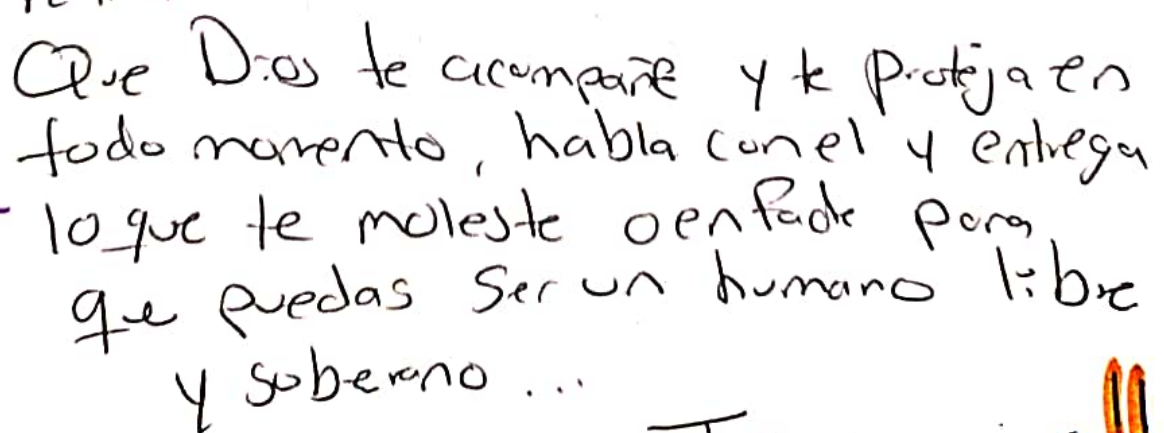 Que Dios te acompañe y te proteja en
todo momento, habla con el y entrega
lo que te moleste o enfade para
que puedas ser un humano libre
y soberano...